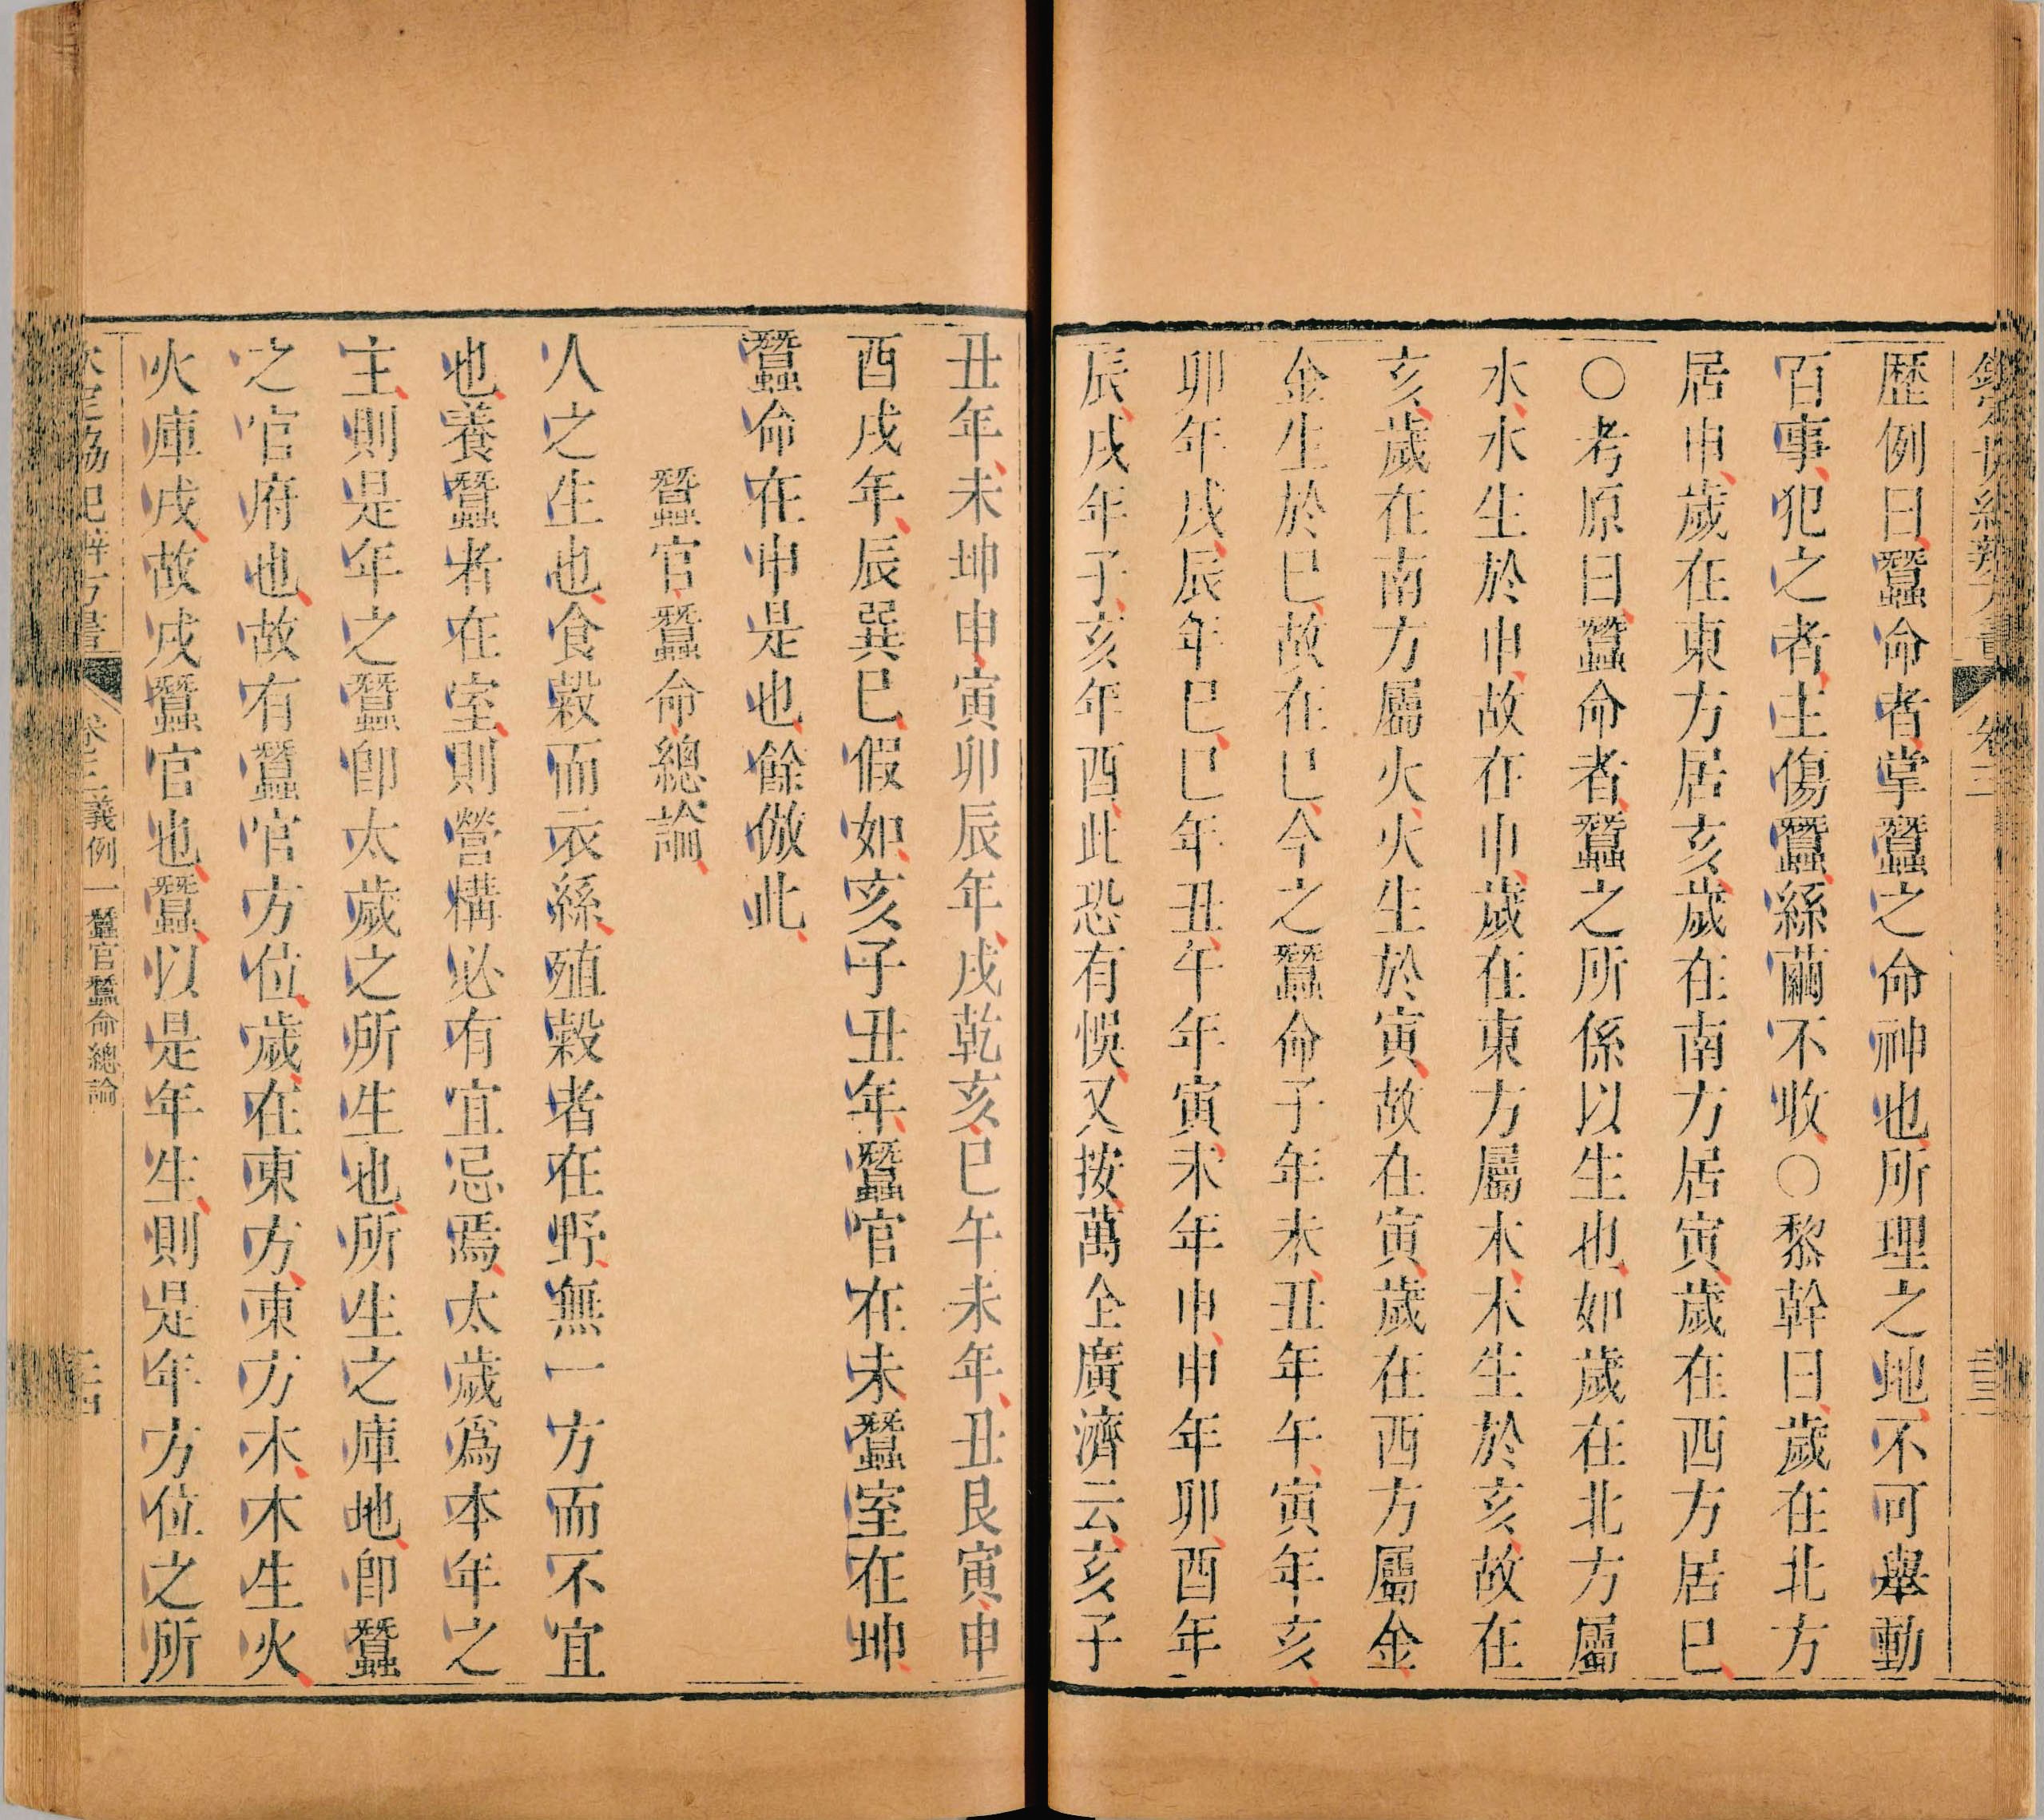 歷例曰蠶命者掌蠶之命神也所理之地不可舉動
百事犯之者主傷蠶絲繭不收○黎幹曰歲在北方
居申歲在東方居亥歲在南方居寅歲在西方居巳
○考原曰蠶命者蠶之所係以生也如歲在北方屬
水水生於申故在申歲在東方屬木木生於亥故在
亥歲在南方屬火火生於寅故在寅歲在西方屬金
金生於巳故在巳今之蠶命子年未丑年午寅年亥
卯年戌辰年巳巳年丑午年寅未年申申年卯酉年
辰戌年子亥年酉此恐有悞又按萬全廣濟云亥子
丑年未坤申寅卯辰年戌乾亥巳午未年丑艮寅申
酉戌年辰巽巳假如亥子丑年蠶官在未蠶室在坤
蠶命在申是也餘倣此
蠶官蠶命總論
人之生也食穀而衣絲殖穀者在野無一方而不宜
也養蠶者在室則營構必有宜忌焉太歲為本年之
主則是年之蠶卽太歲之所生也所生之庫地卽蠶
之官府也故有蠶官方位歲在東方東方木木生火
火庫戌故戌蠶官也蠶以是年生則是年方位之所
卷三義例一蠶官蠶命總論